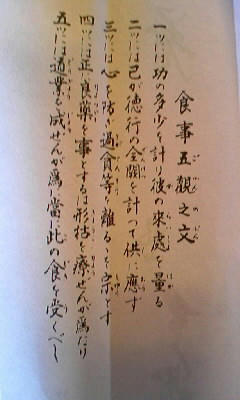 食事五観之文
一ツには功の多少を計り彼の来處を量る
二ツには己が徳行の全闕を計つて供に應ず
三ツには心を防ぎ過貪等を離るゝを宗とす
四ツには正に良薬を事とするは形枯を療ぜんが為なり
五ツには道業を成ぜんが為に當に此の食を受くべし